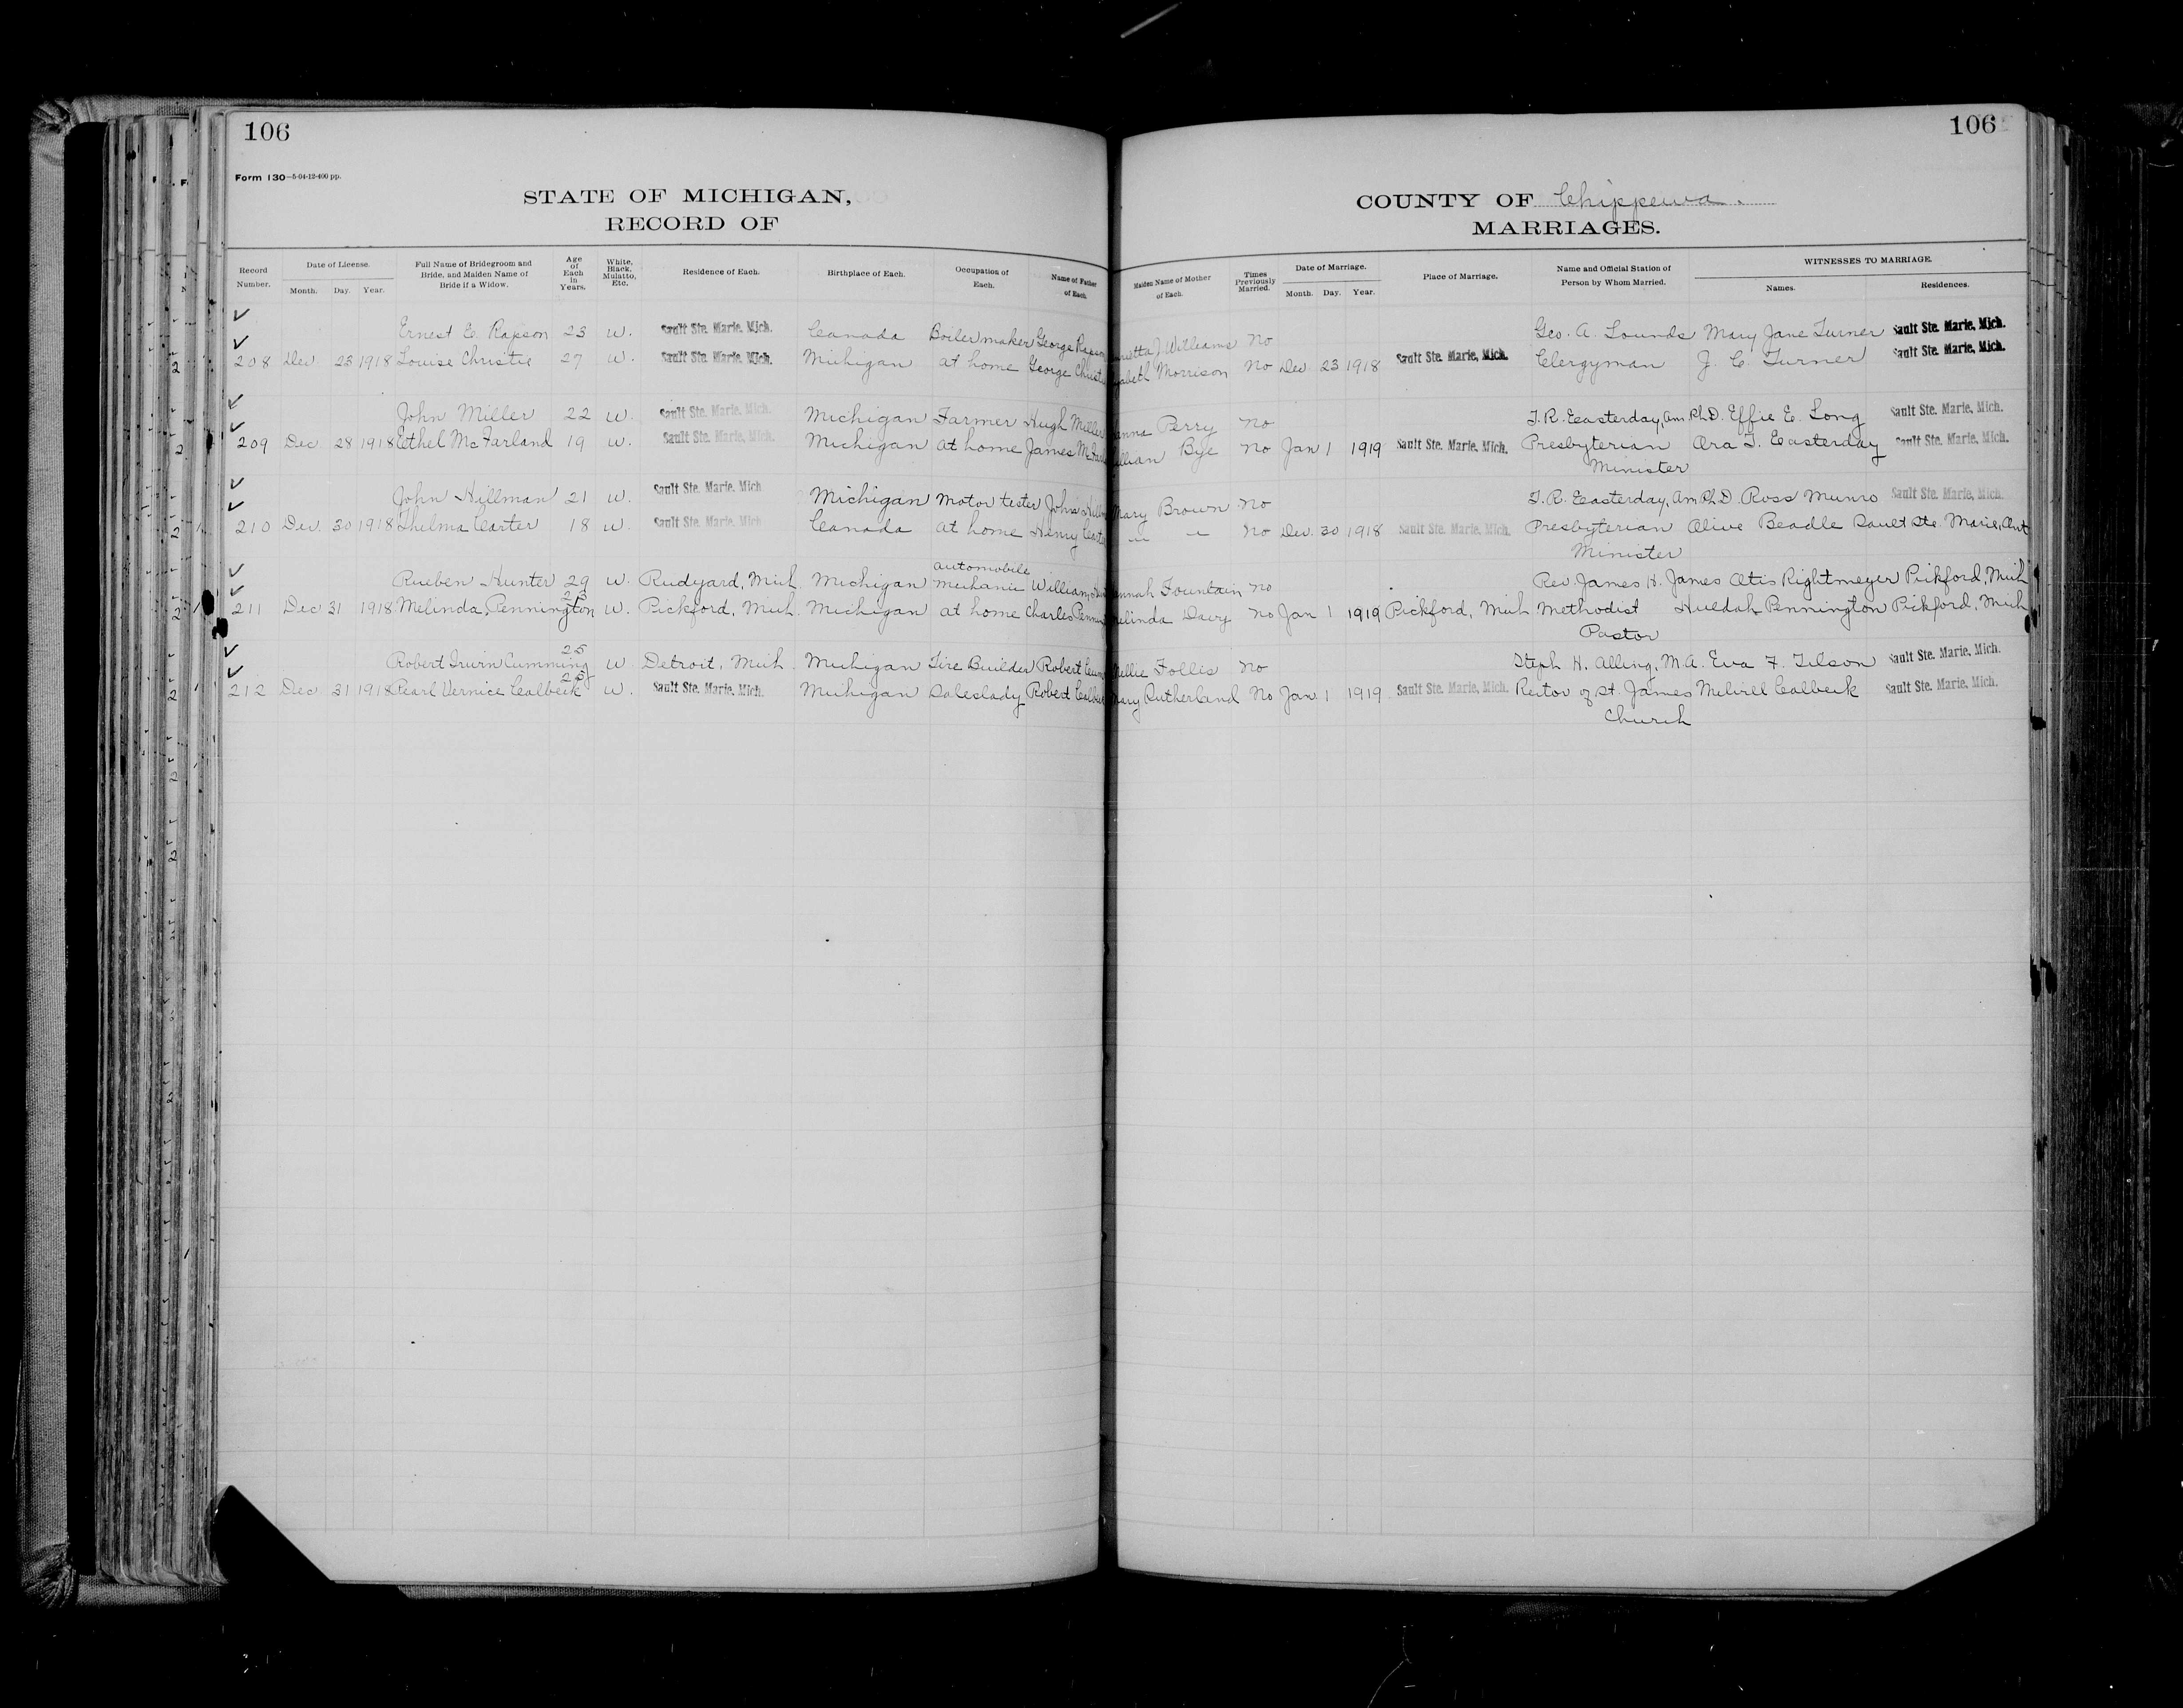 106
106
Form 130—5-04-12-400 pp.
STATE OF MICHIGAN,
RECORD OF
COUNTY OF Chippewa.
MARRIAGES.
Record Number.
Date of License.
Month. Day. Year.
Full Name of Bridegroom and Bride, and Maiden Name of Bride if a Widow.
Age of Each in Years.
White, Black, Mulatto, Etc.
Residence of Each.
Birthplace of Each.
Occupation of Each.
Name of Father of Each.
Maiden Name of Mother of Each.
Times Previously Married.
Date of Marriage.
Month. Day. Year.
Place of Marriage.
Name and Official Station of Person by Whom Married.
WITNESSES TO MARRIAGE.
Names.
Residences.
Ernest E. Rapson 23 W. Sault Ste. Marie, Mich. Canada Boilermaker George J Williams No Geo. A. Lounds Mary Jane Turner Sault Ste. Marie, Mich.
208 Dec 23 1918 Louise Christie 27 W. Sault Ste. Marie, Mich. Michigan at home George Morrison No Dec. 23 1918 Sault Ste. Marie, Mich. Clergyman J. C. Turner Sault Ste. Marie, Mich.
John Miller 22 W. Sault Ste. Marie, Mich. Michigan Farmer Hugh Miller Perry No T. R. Easterday, Am. Ph.D. Effie E. Long Sault Ste. Marie, Mich.
209 Dec 28 1918 Ethel McFarland 19 W. Sault Ste. Marie, Mich. Michigan at home James Bye No Jan 1 1919 Sault Ste. Marie, Mich. Presbyterian Ora T. Easterday Sault Ste. Marie, Mich.
Minister
John Hillman 21 W. Sault Ste. Marie, Mich Michigan Motor tester John Mary Brown No T. R. Easterday, Am Ph.D. Ross Munro Sault Ste. Marie, Mich.
210 Dec 30 1918 Thelma Carter 18 W. Sault Ste. Marie, Mich Canada at home Henry No Dec. 30 1918 Sault Ste. Marie, Mich. Presbyterian Olive Beadle Sault Ste. Marie, Ont
Minister
automobile
Rueben Hunter 29 W. Rudyard, Mich. Michigan mechanic William Fountain No Rev. James H. James Otis Rightmeyer Pickford, Mich
23
211 Dec 31 1918 Melinda Pennington W. Pickford, Mich. Michigan at home Charles Davy No Jan 1 1919 Pickford, Mich Methodist Huldah Pennington Pickford, Mich
Pastor
25
Robert Irwin Cumming W Detroit, Mich. Michigan Tire Builder Robert Nellie Follis No Steph H. Alling, M.A. Eva F. Tilson Sault Ste. Marie, Mich.
212 Dec 31 1918 Pearl Vernice Calbeck W. Sault Ste. Marie, Mich. Michigan Saleslady Robert Mary Rutherland No Jan. 1 1919 Sault Ste. Marie, Mich. Rector of St. James Calbeck Sault Ste. Marie, Mich.
Church